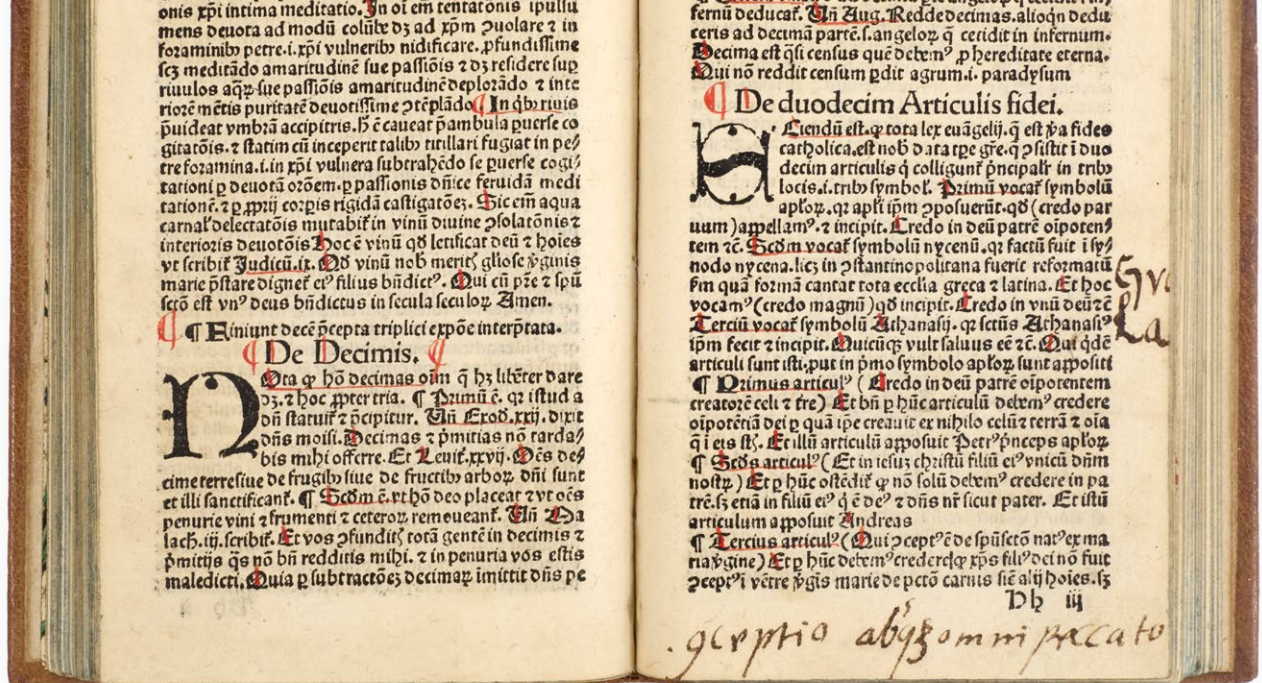 onis xp̄i intima meditatio. In oī em̄ tentatōnis ipulsu
mens deuota ad modū colūbe dꝫ ad xp̄m ꝯuolare ⁊ in
foraminibꝰ petre .i. xp̄i vulneribꝰ nidificare. ꝓfundissime
scꝫ meditādo amaritudinē sue passiōis ⁊ dꝫ residere suꝑ
riuulos aqꝝ sue passiōis amaritudinē deplorādo ⁊ inte
riorē mētis puritatē deuotissime ꝯtēplādo ¶ In qͥbꝰ riuis
p̄uideat vmbrā accipitris. h̄ ē caueat p̄ambula ꝑuerse co
gitatōis. ⁊ statim cū inceperit talibꝰ titillari fugiat in pe⸗
tre foramina .i. in xp̄i vulnera subtrahēdo se ꝑuerse cogi⸗
tationi ꝑ deuotā orōem. ꝑ passionis dn̄ice feruidā medi
tationē. ⁊ ꝑ ꝓprij corꝑis rigidā castigatōeꝫ. Sic em̄ aqua
carnal̓ delectatōis mutabit̄ in vinū diuine ꝯsolatōnis ⁊
interioris deuotōis Hoc ē vinū qd̄ letificat deū ⁊ hoīes
vt scribit̄ Judicū .ix. Qd̄ vinū nob̄ meritꝭ gl̄iose ꝟginis
marie p̄stare dignet̄ eiꝰ filius bn̄dictꝰ. Qui cū pr̄e ⁊ spū
sctō est vnꝰ deus bn̄dictus in secula seculoꝝ Amen.
¶ ¶ Finiunt decē p̄cepta triplici expōe interp̄tata.
¶ De Decimis. ¶
NOta ꝙ hō decimas oīm q̄ hꝫ libēter dare
dꝫ. ⁊ hoc ꝓpter tria. ¶ Primū ē. qꝛ istud a
dn̄o statuit̄ ⁊ p̄cipitur. Vn̄ Exod̄. xxij. dixit
dn̄s moisi. Decimas ⁊ p̄mitias nō tarda⸗
bis mihi offerre. Et Leuit̄. xxvij. Oēs de⸗
cime terre siue de frugibꝰ siue de fructibꝰ arboꝝ dn̄i sunt
et illi sanctificant̄. ¶ Scd̄m ē. vt hō deo placeat ⁊ vt oēs
penurie vini ⁊ frumenti ⁊ ceteroꝝ remoueant̄. Vn̄ Ma
lach. iij. scribit̄. Et vos ꝯfunditꝭ totā gentē in decimis ⁊
p̄mitijs qͣs nō bn̄ redditis mihi. ⁊ in penuria vos estis
maledicti. Quia ꝑ subtractōeꝫ decimaꝝ imittit dn̄s pe
fernū deducat̄. Vn̄ Aug. Redde decimas. alioqn̄ dedu
ceris ad decimā partē .s. angeloꝝ q̄ cecidit in infernum.
Decima est qͣsi census quē debemꝰ ꝓ hereditate eterna.
Qui nō reddit censum ꝑdit agrum .i. paradysum
¶ De duodecim Articulis fidei.
SCiendū est. ꝙ tota lex euāgelij. q̄ est ꝟa fides
catholica. est nob̄ data tꝑe gr̄e. q̄ ꝯsistit ī duo
decim articulis q̄ colligunt̄ p̄ncipalr̄ in tribꝰ
locis .i. tribꝰ symbol̓. Primū vocat̄ symbolū
apl̄oꝝ. qꝛ apl̄i ip̄m ꝯposuerūt. qd̄ (credo par
uum) appellamꝰ. ⁊ incipit. Credo in deū patrē oīpoten⸗
tem ⁊c̄. Scd̄m vocat̄ symbolū nycenū. qꝛ factū fuit ī sy⸗
nodo nycena. licꝫ in ꝯstantinopolitana fuerit reformatū
ẜm quā formā cantat tota eccl̄ia greca ⁊ latina. Et hoc
vocamꝰ (credo magnū) qd̄ incipit. Credo in vnū deū ⁊c̄
Terciū vocat̄ symbolū Athanasij. qꝛ sctūs Athanasiꝰ
ip̄m fecit ⁊ incipit. Quicūqꝫ vult saluus eē ⁊c̄. Qui qͥdē
articuli sunt isti. put in pͥmo symbolo apl̄oꝝ sunt appositi
¶ Primus articulꝰ (Credo in deū patrē oīpotentem
creatorē celi ⁊ tr̄e) Et bn̄ ꝑ hūc articulū debemꝰ credere
oīpotētiā dei ꝑ quā ip̄e creauit ex nihilo celū ⁊ terrā ⁊ oīa
q̄ ī eis st̄. Et illū articulū apposuit Petrꝰ p̄nceps apl̄oꝝ
¶ Scd̄s articulꝰ (Et in iesuꝫ christū filiū eiꝰ vnicū dn̄m
nostꝝ) Et ꝑ hūc ostēdit̄ ꝙ nō solū debemꝰ credere in pa
trē. sꝫ etiā in filiū eiꝰ q̄ ē deꝰ ⁊ dn̄s nr̄ sicut pater. Et istū
articulum apposuit Andreas
¶ Tercius articulꝰ (Qui ꝯceptꝰ ē de spūsctō natꝰ ex ma
ria ꝟgine) Et ꝑ hūc debemꝰ credere ꝙ xp̄s filiꝰ dei nō fuit
ꝯceptꝰ ī vētre ꝟgīs marie de pctō carnis sic̄ alij hoīes. sꝫ
Dh iij
ꝯceptio absqꝫ omni peccato